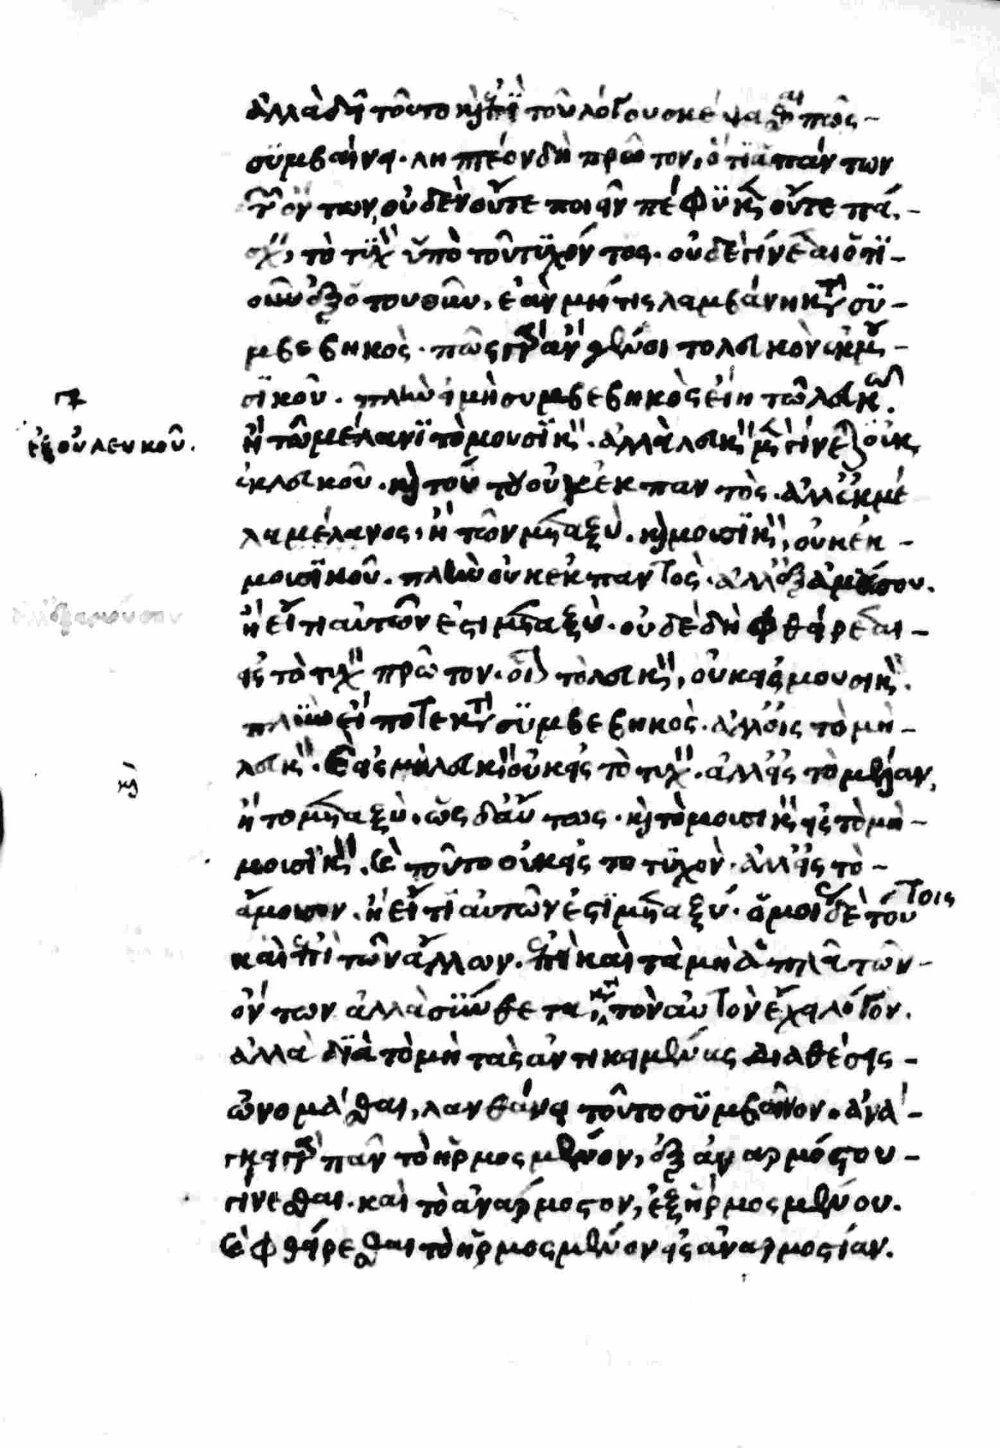 ἀλλὰ δῆ τοῦτο καὶ ἐπὶ τοῦ λόγου σκέψασθαι πῶς
συμβαίνει. ληπτέον δὴ πρῶτον, ὅτι ἁπάντων
τῶν ὄντων, οὐδὲν οὔτε ποιεῖν πέφυκεν οὔτε πά-
σχειν τὸ τυχὸν ὑπὸ τοῦ τυχόντος. οὐδὲ γίνεσθαι ὁτι-
οῦν ἐξ ὁτουοῦν, ἐὰν μή τις λαμβάνη κατὰ συ-
μβεβηκός. πῶς γὰρ ἂν γένοιτο λευκὸν ἐκ μου-
σικοῦ. πλὴν εἰ μὴ συμβεβηκὸς εἴη τῶ λευκῶ.
ἢ τῶ μέλανι τὸ μουσικόν. ἀλλὰ λευκὸν μὲν γίνεται ἐξ οὐκ
ἐξ οὐ λευκοῦ.
ἐκ λευκοῦ. καὶ τούτου οὐκ ἐκ παντὸς. ἀλλ' ἐκ μέ
λα μέλανος, ἢ τῶν μεταξὺ. καὶ μουσικὸν, οὐκ ἐκ
μουσικοῦ. πλὴν οὐκ ἐκ παντὸς. ἀλλ' ἐξ ἀμούσου.
ἢ εἴ τι αὐτῶν ἐστι μεταξὺ. οὐδὲ δὴ φθείρεσθαι
εἰς τὸ τυχὸν πρῶτον. οἷον τὸ λευκὸν, οὐκ εἰς μουσικόν.
πλὴν εἴ ποτε κατὰ συμβεβηκὸς. ἀλλ' εἰς τὸ μὴ
λευκόν. καὶ εἰς μὴ λευκὸν οὐκ εἰς τὸ τυχὸν. ἀλλ' εἰς τὸ μέλαν,
ἢ τὸ μεταξὺ. ὡς δ' αὔτως. καὶ τὸ μουσικὸν εἰς τὸ μὴ
καὶ
μουσικόν. καὶ τοῦτο οὐκ εἰς τὸ τυχὸν. ἀλλ' εἰς τὸ
ἄμουσον. ἢ εἴ τι αὐτῶν ἐστι μεταξύ. ὁμοίως δὲ τούτοις
καὶ ἐπὶ τῶν ἄλλων. ἐπεὶ καὶ τὰ μὴ ἁπλᾶ τῶν
ὄντων ἀλλὰ σύνθετα, κατὰ τὸν αὐτὸν ἔχει λόγον.
ἀλλὰ διὰ τὸ μὴ τὰς ἀντικειμένας διαθέσεις
ὠνομάσθαι, λανθάνει τοῦτο συμβαῖνον. ἀνά-
γκη γὰρ πᾶν τὸ ἡρμοσμένον, ἐξ ἀναρμόστου
γίνεσθαι. καὶ τὸ ἀνάρμοστον, ἐξ ἡρμοσμένου.
καὶ φθείρεσθαι τὸ ἡρμοσμένον εἰς ἀναρμοστίαν.